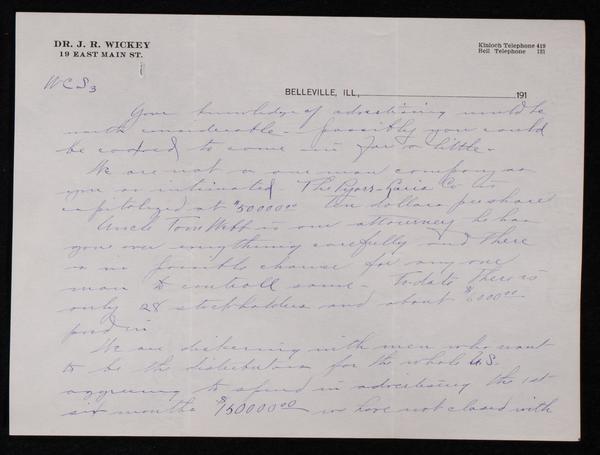 DR. J. R. WICKEY
19 EAST MAIN ST.
Kinloch Telephone 419
Bell Telephone 121
W C S 3
BELLEVILLE, ILL., 191
Your knowledge of advertising would be
worth considerable - possibly you could
be coaxed to come in for a little.
We are not a one man company as
you so intimated. The Co is
capitolized at $50000.00 Ten dollars per share
Uncle Tom Webb is our attourney he has
gone over everything carefully and there
is no possible chance for any one
man to controll same - To date there is
only 28 stockholders and about $6000.00
paid in
We are dickering with men who want
to be the distributors for the whole U.S.
aggreeing to spend in advertising the 1st
six months $150000.00 we have not closed with